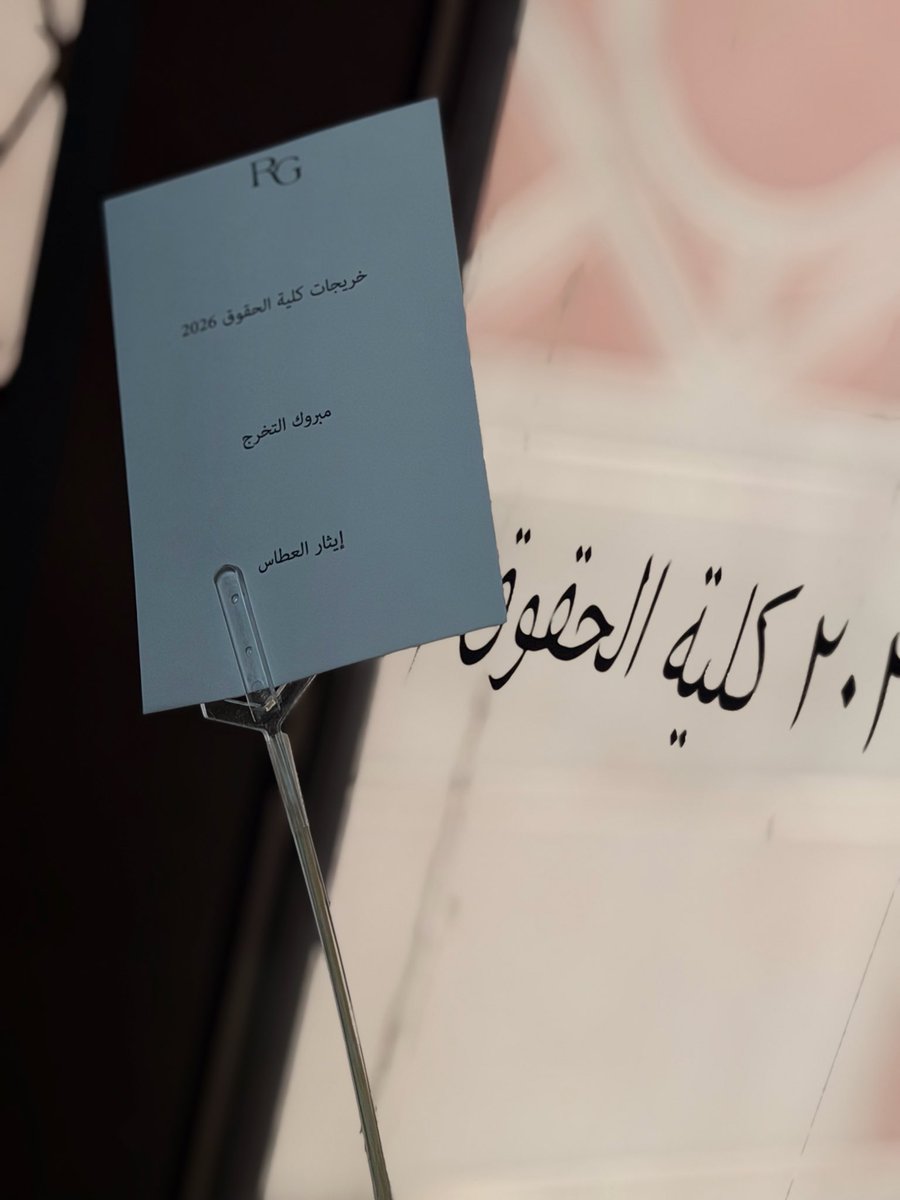 RG
خريجات كلية الحقوق 2026
مبروك التخرج
إيثار العطاس
كلية الحقوق